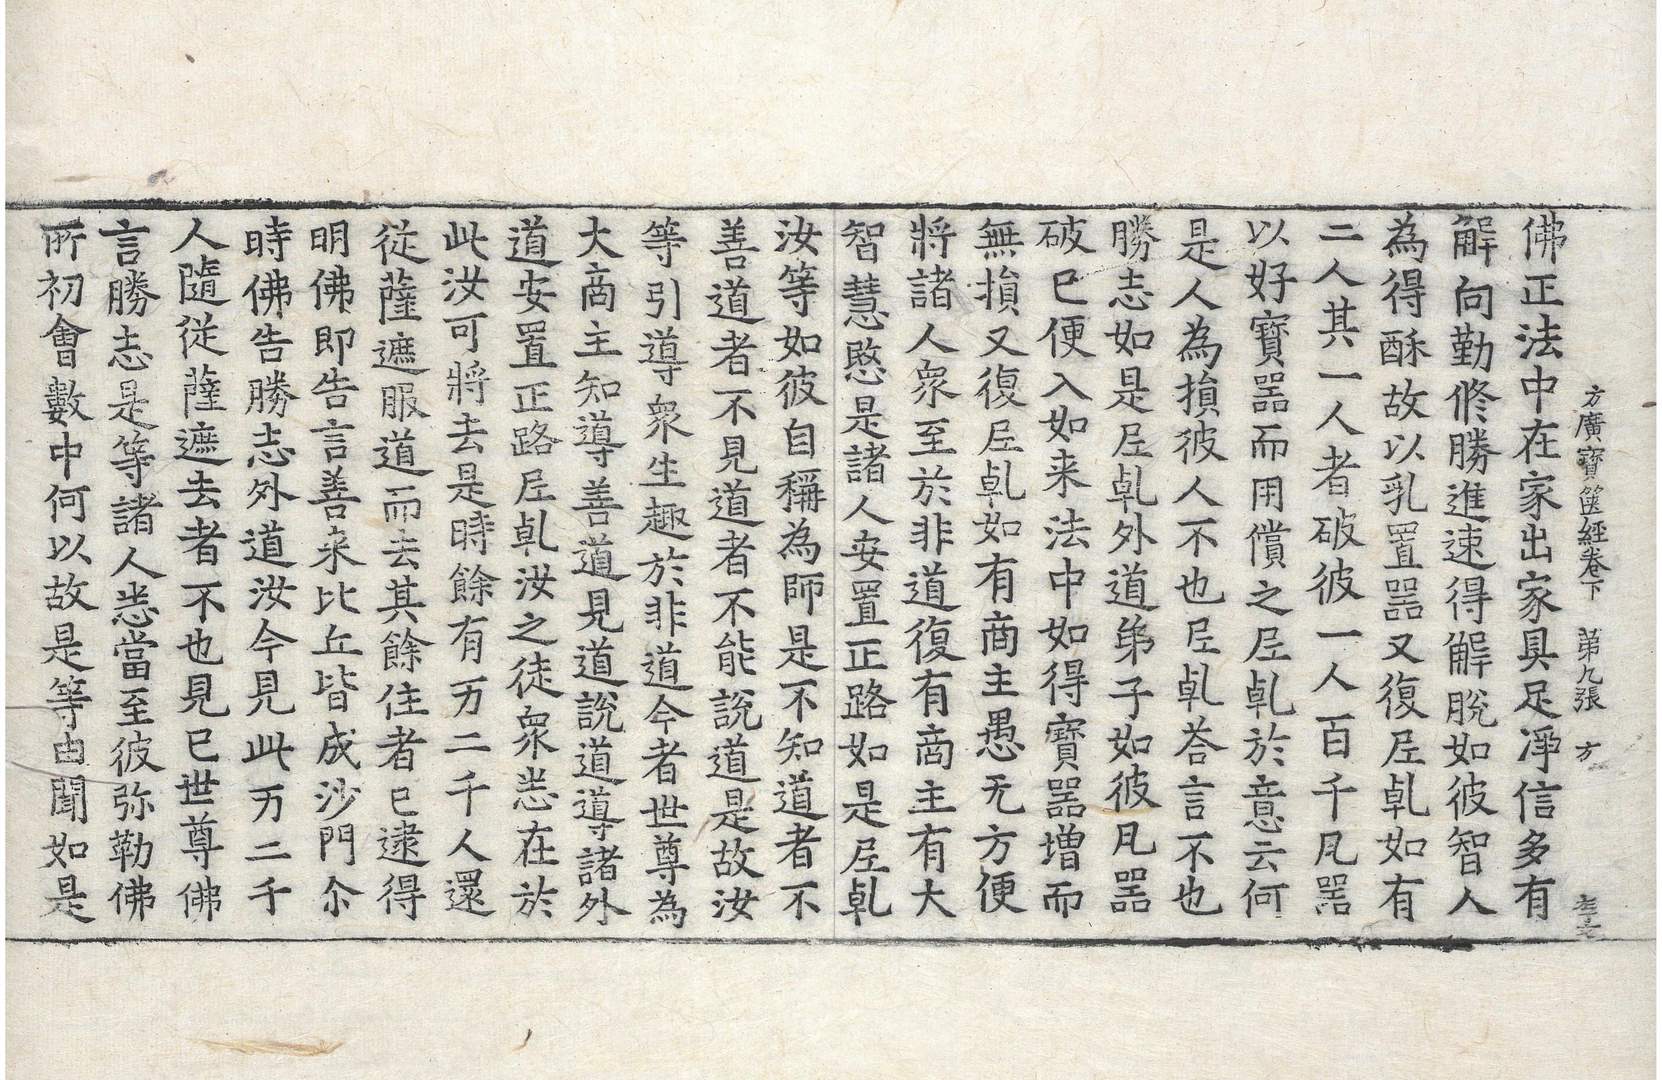 方廣寶篋經卷下 第九張 方
佛正法中在家出家具足淨信多有
解向勤修勝進速得解脫如彼智人
為得酥故以乳置器又復尼乹如有
二人其一人者破彼一人百千凡器
以好寶器而用償之尼乹於意云何
是人為損彼人不也尼乹荅言不也
勝志如是尼乹外道弟子如彼凡器
破已便入如来法中如得寶器增而
無損又復尼乹如有商主愚无方便
將諸人衆至於非道復有商主有大
智慧愍是諸人安置正路如是尼乹
汝等如彼自稱為師是不知道者不
善道者不見道者不能説道是故汝
等引導衆生趣於非道今者世尊為
大商主知導善道見道説道導諸外
道安置正路尼乹汝之徒衆悉在於
此汝可將去是時餘有万二千人還
從薩遮服道而去其餘住者已逮得
明佛即告言善来比丘皆成沙門尒
時佛告勝志外道汝今見此万二千
人隨從薩遮去者不也見已世尊佛
言勝志是等諸人悉當至彼弥勒佛
所初會數中何以故是等由聞如是